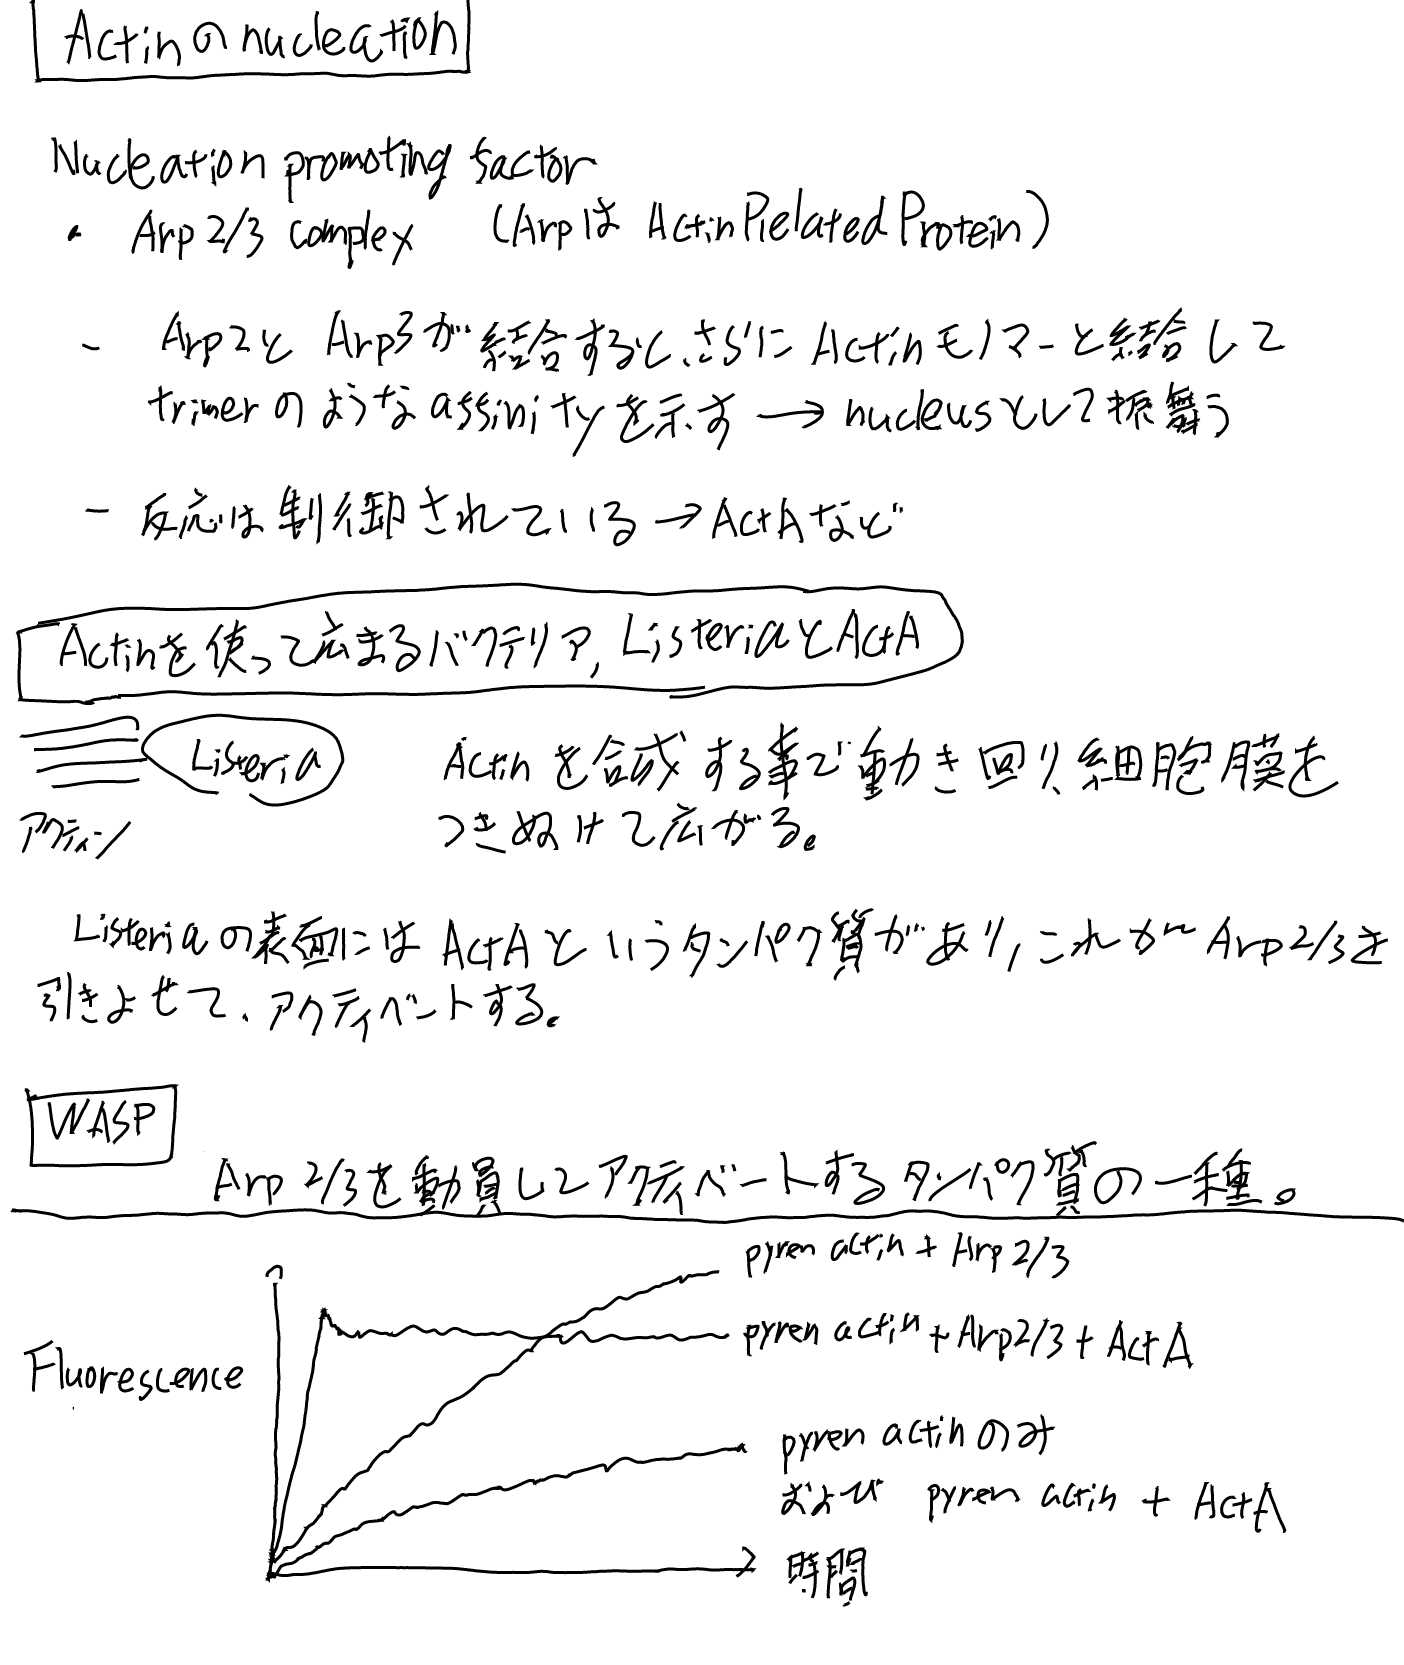 Actinのnucleation
Nucleation promoting factor
・ Arp 2/3 complex (Arpは Actin Related Protein)
- Arp2と Arp3が結合すると、さらに Actinモノマーと結合して
trimerのような affinityを示す → nucleusとして振舞う
- 反応は制御されている → ActAなど
Actinを使って広まるバクテリア, ListeriaとActA
Listeria
アクティン
Actinを合成する事で動き回り、細胞膜を
つきぬけて広がる。
Listeriaの表面には ActAというタンパク質があり, これが Arp 2/3を
引きよせて、アクティベートする。
WASP
Arp 2/3を動員してアクティベートするタンパク質の一種。
pyren actin + Arp 2/3
pyren actin + Arp2/3 + ActA
Fluorescence
pyren actinのみ
および pyren actin + ActA
時間